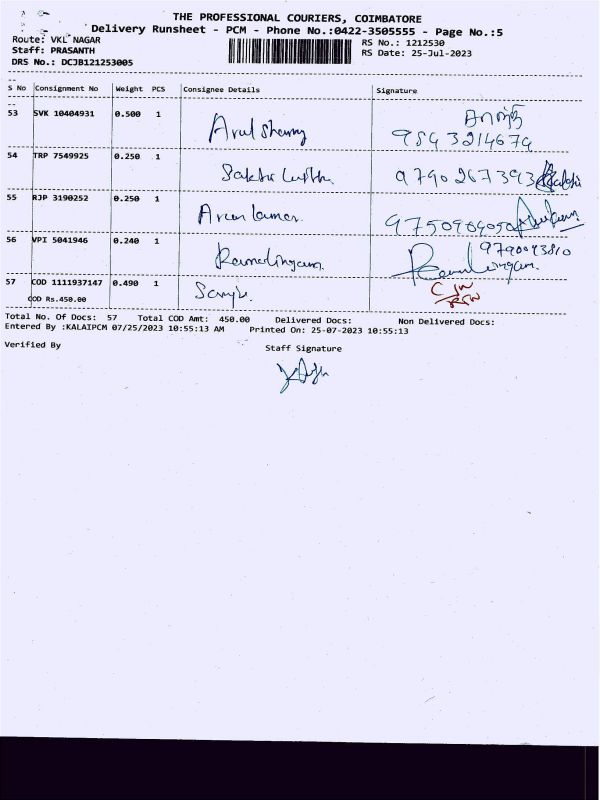 THE PROFESSIONAL COURIERS, COIMBATORE
Delivery Runsheet - PCM - Phone No.:0422-3505555 - Page No.:5
Route: VKL NAGAR
RS No.: 1212530
Staff: PRASANTH
RS Date: 25-Jul-2023
DRS No.: DCJB121253005
S No Consignment No Weight PCS Consignee Details Signature
53 SVK 10404931 0.500 1
9843214674
54 TRP 7549925 0.250 1
9790267393
55 RJP 3190252 0.250 1 Arun
56 VPI 5041946 0.240 1 Ramalingam
57 COD 1111937147 0.490 1
COD Rs.450.00
Total No. Of Docs: 57 Total COD Amt: 450.00 Delivered Docs: Non Delivered Docs:
Entered By :KALAIPCM 07/25/2023 10:55:13 AM Printed On: 25-07-2023 10:55:13
Verified By
Staff Signature